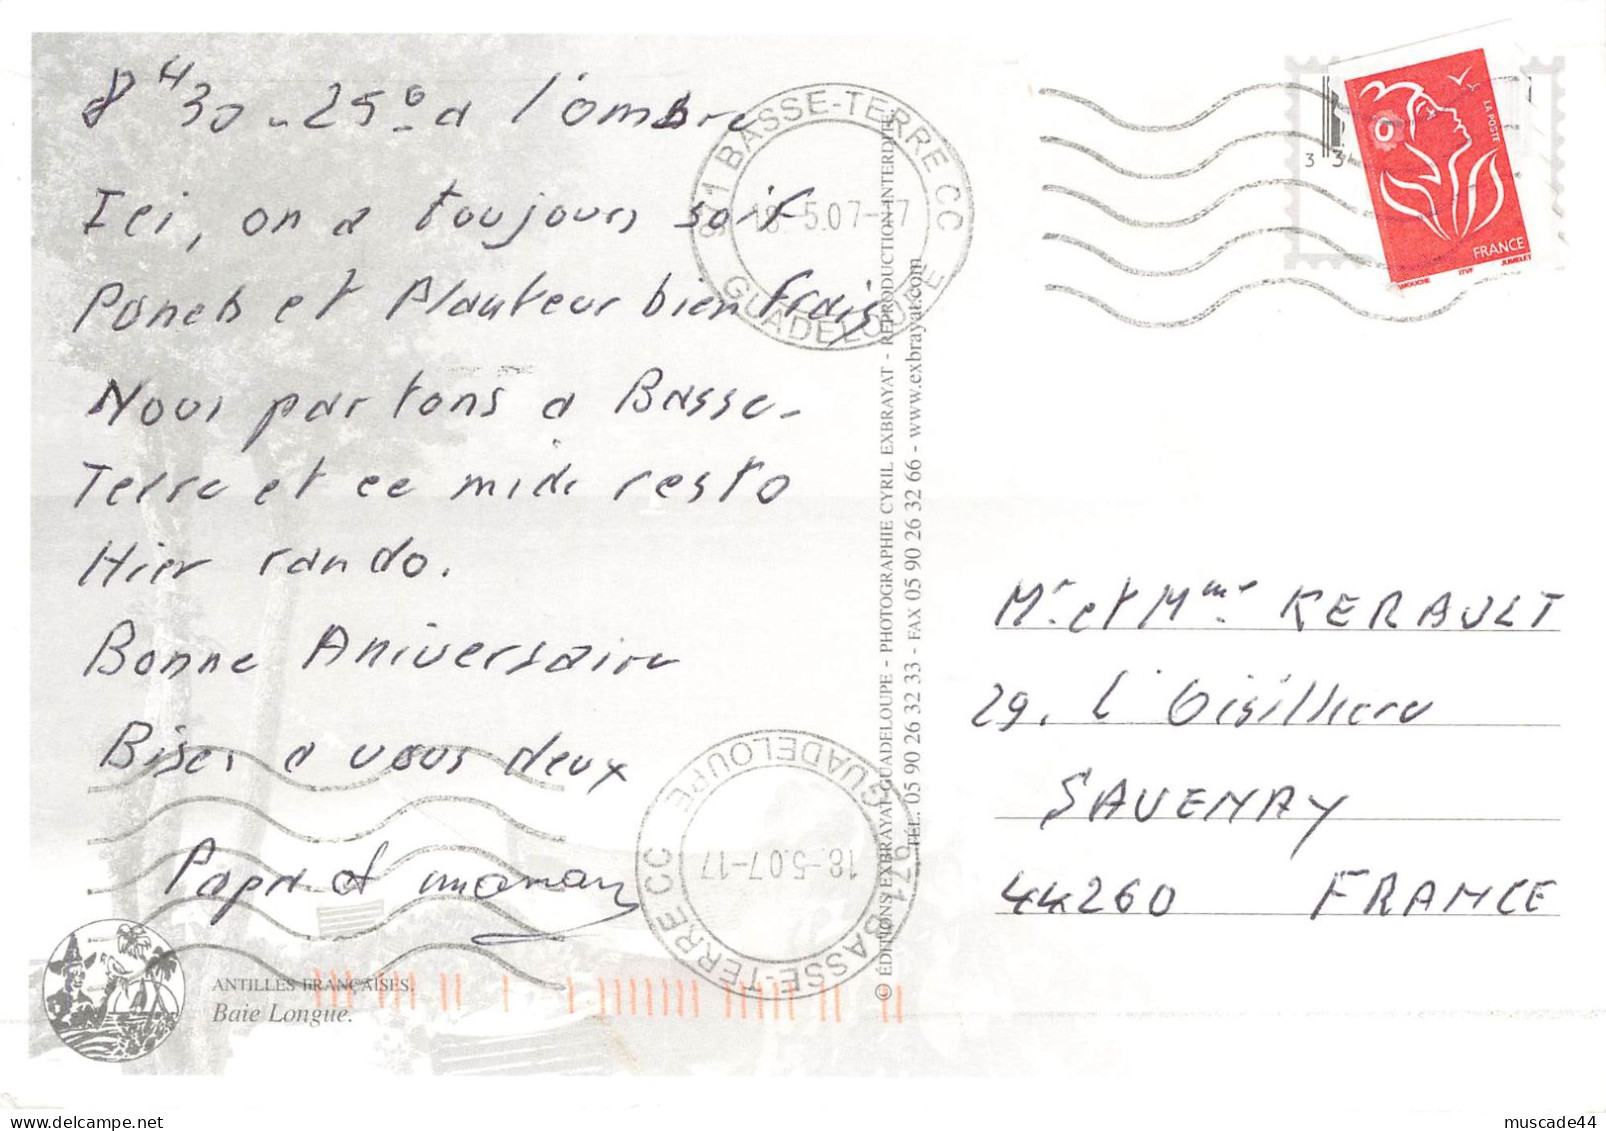 8H30 - 25° a l'ombre
Ici, on a toujours soif
Ponch et Planteur bien frais
Nous partons a Basse-
Terre et ce midi resto
Hier rando.
Bonne Aniversaire
Bises a vous deux
Papa et maman
ANTILLES FRANÇAISES.
Baie Longue.
971 BASSE-TERRE CC
18-5.07-17
GUADELOUPE
971 BASSE-TERRE CC
18-5.07-17
GUADELOUPE
© ÉDITIONS EXBRAYAT-GUADELOUPE - PHOTOGRAPHIE CYRIL EXBRAYAT - REPRODUCTION INTERDITE
TÉL. 05 90 26 32 33 - FAX 05 90 26 32 66 - www.exbrayat.com
3 3
LA POSTE
FRANCE
ITVF
JUMELET
Mr et Mme KERAULT
29. L'Oisillière
SAVENAY
44260 FRANCE
muscade44